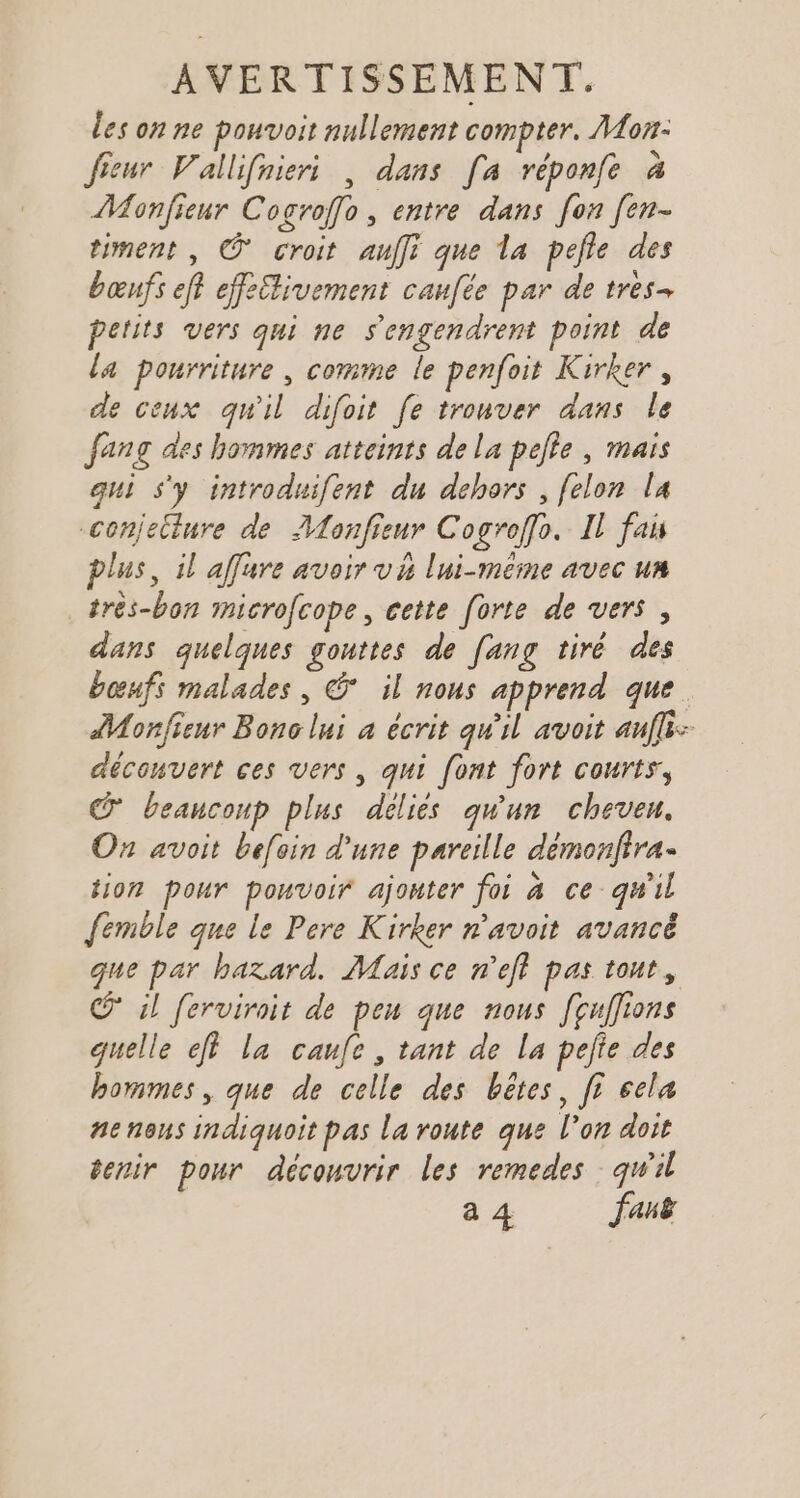 AVERTISSEMENT.
les on ne pouvoit nullement compter. Mon-
ſieur Valliſnieri , dans ſa réponſe à
Monſieur Cogroſſo , entre dans ſon ſen-
timent , & croit auſſi que la peſte des
bœufs eſt effectivement cauſée par de très-
petits vers qui ne s'engendrent point de
la pourriture , comme le penſoit Kirker ,
de ceux qu'il diſoit ſe trouver dans le
ſang des hommes atteints de la peſte , mais
qui s'y introduiſent du dehors , ſelon la
conjecture de Monſieur Cogroſſo. Il fait
plus, il aſſure avoir vû lui-même avec un
très-bon microſcope , cette ſorte de vers ,
dans quelques gouttes de ſang tiré des
bœufs malades , & il nous apprend que
Monſieur Bono lui a écrit qu'il avoit auſſi
découvert ces vers , qui ſont fort courts,
& beaucoup plus déliés qu'un cheveu.
On avoit beſoin d'une pareille démonſtra-
tion pour pouvoir ajouter foi à ce qu'il
ſemble que le Pere Kirker n'avoit avancé
que par hazard. Mais ce n'eſt pas tout,
& il ſerviroit de peu que nous ſçuſſions
quelle eſt la cauſe , tant de la peſte des
hommes , que de celle des bêtes, ſi cela
ne nous indiquoit pas la route que l'on doit
tenir pour découvrir les remedes qu'il
a 4 faut